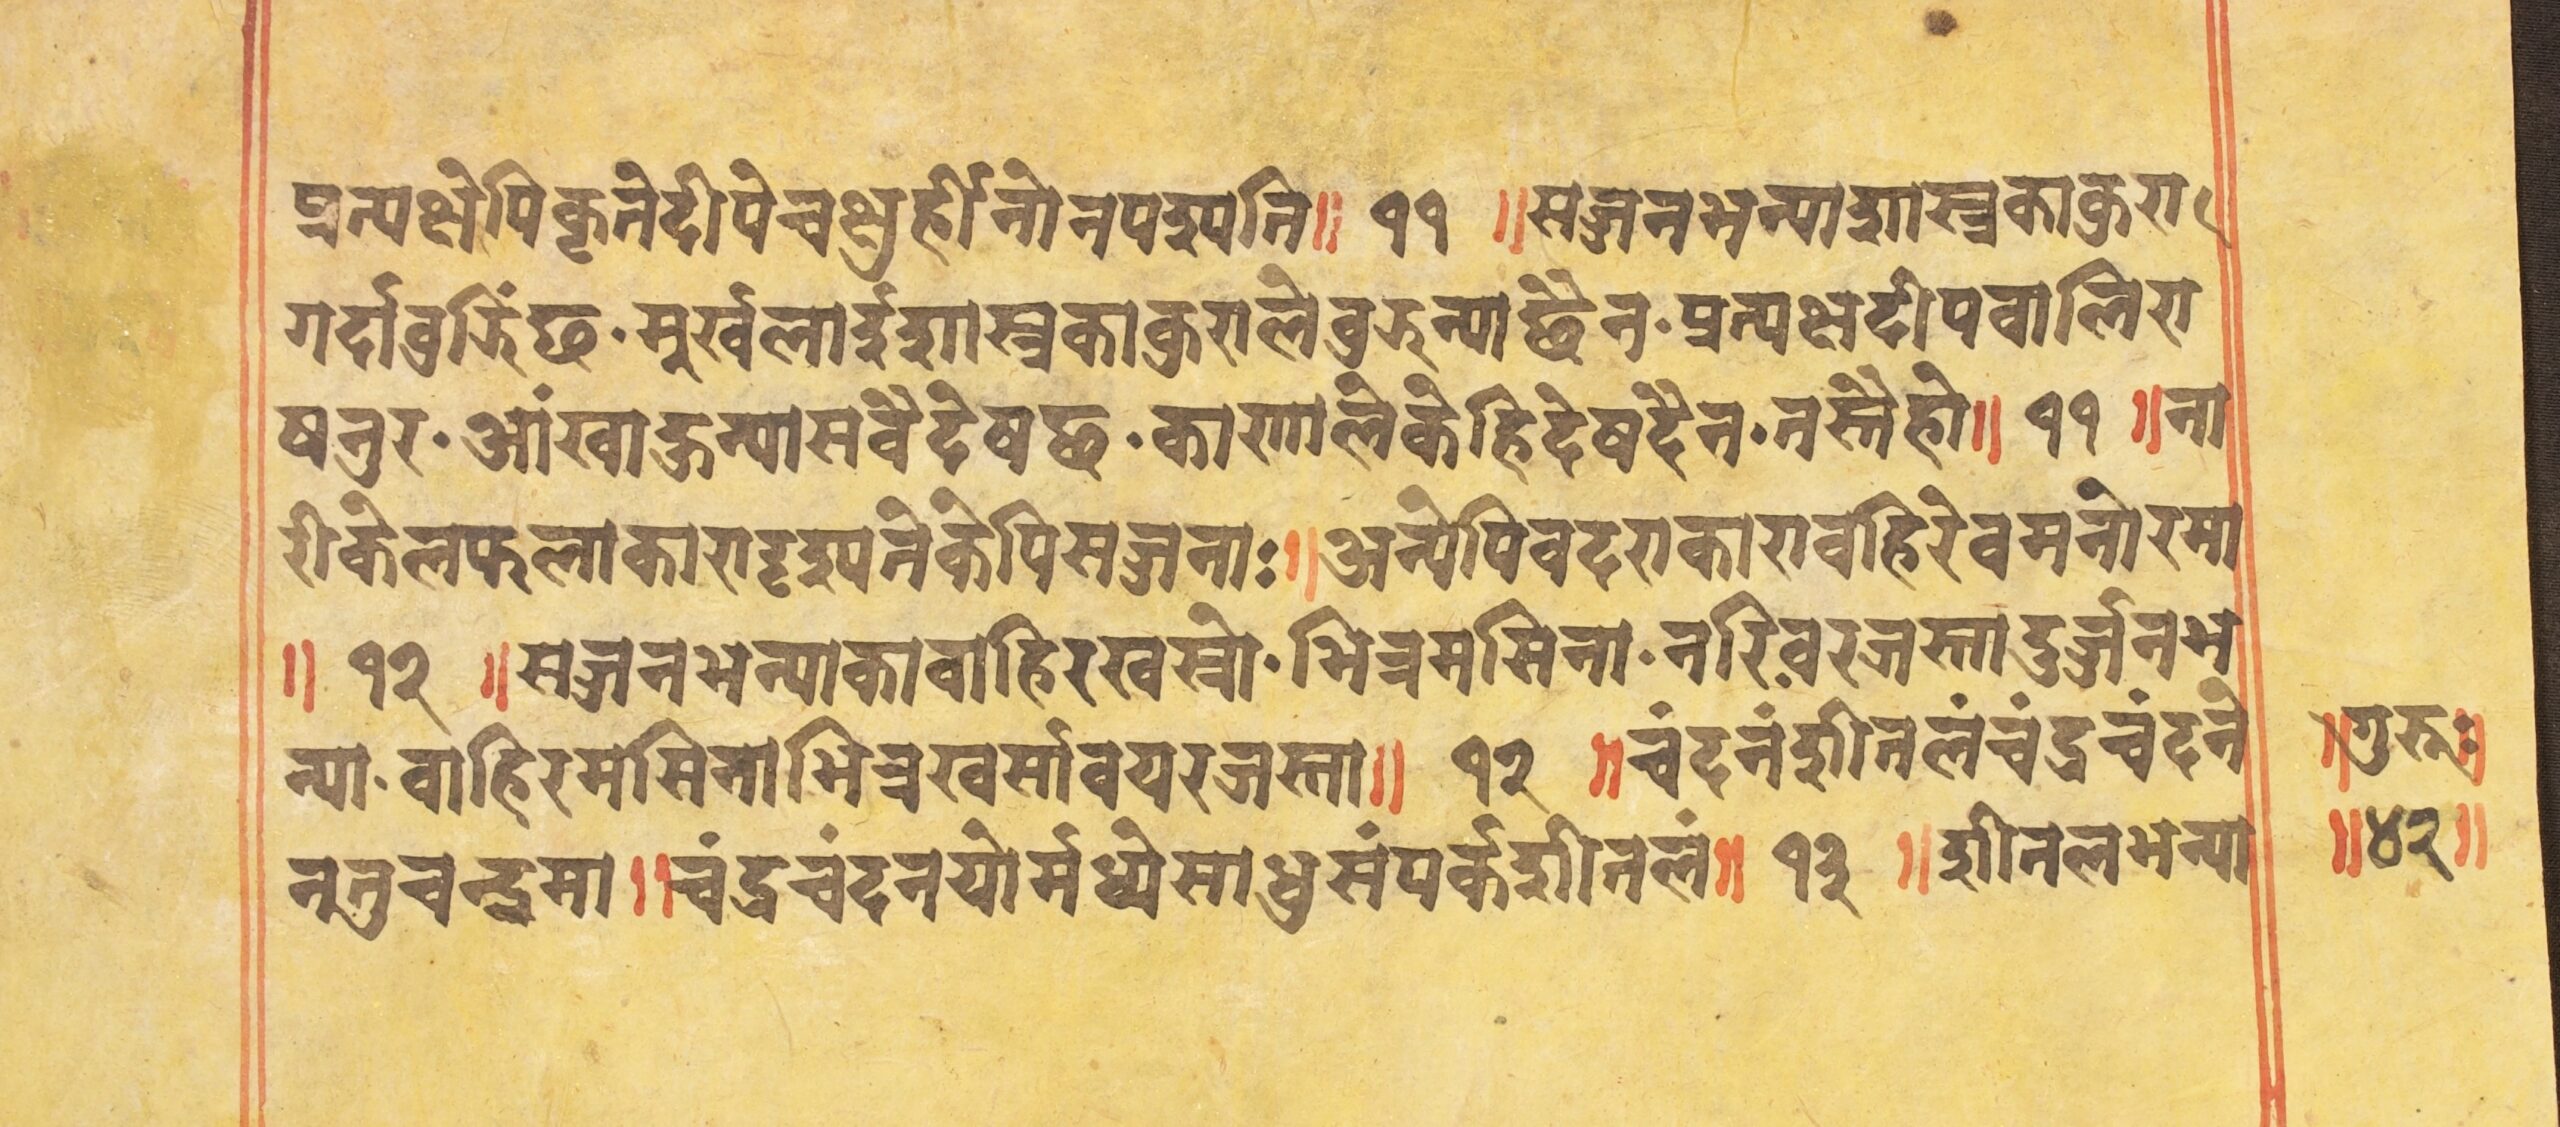 प्रत्यक्षेपिकृतेदीपेचक्षुर्हीनोनपश्यति॥ ११ ॥सज्जनभन्याशास्त्रकाकुरा
गर्दाबुझिंछ·मुर्खलाईशास्त्रकाकुरालेबुझन्याछैन·प्रत्यक्षदीपवालिरा
षतुर·आंखाहुन्यासवैदेषछ·कारणालेकेहिदेषदैन·तस्तैहो॥ ११ ॥ना
रीकेलफलाकारादृश्यतेकेपिसज्जनाः॥अन्येपिवदराकारावहिरेवमनोरमा
॥ १२ ॥सज्जनभन्याकावाहिरखस्रो·भित्रमसिना·नरिवरजस्तादुर्ज्जनभ
न्या·वाहिरमसिनाभित्रखर्सावयरजस्ता॥ १२ ॥चंदनंशीतलंचंद्रचंदने
नतुचन्द्रमा॥चंद्रचंदनयोर्मध्येसाधुसंपर्कशीतलं॥ १३ ॥शीतलभन्या
॥गुरूः॥
॥४२॥